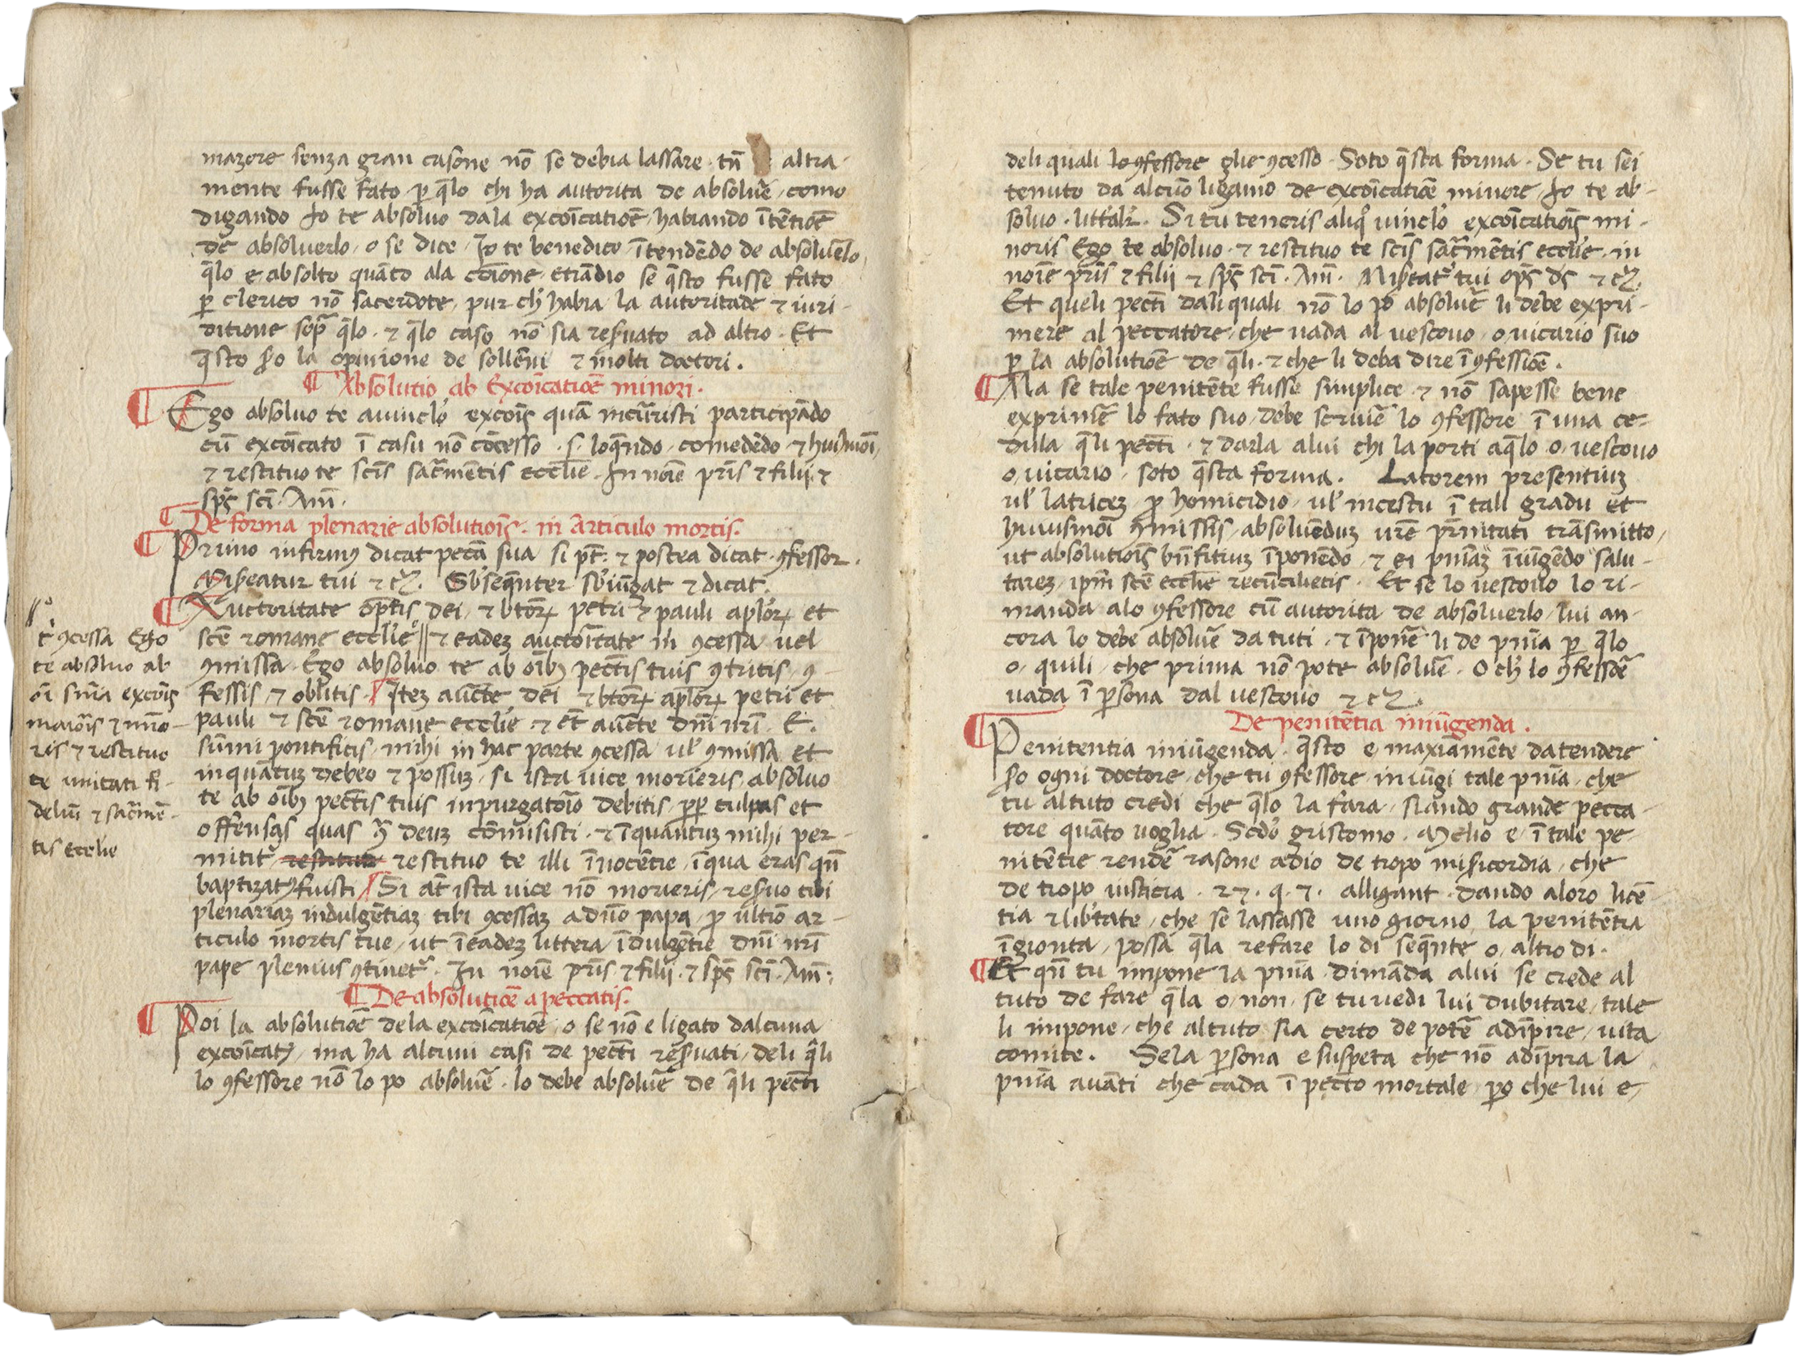 mazore senza gran casone nō se debia lassare · tn̄ altra
mente fusse fato · ꝑ q̄lo chi ha autorita de absolu̅e · como
digando Jo te absoluo dala excoīcatiōe habiando ītētiōe
de absoluerlo · o se dice · Jo te benedico · ītendēdo de absoluēlo,
q̄lo e absolto quāto ala cōione · etiādio se q̄sto fusse fato
ꝑ clerico nō sacerdote · pur ch' habia la autoritade ⁊ iuri-
ditione sop̄ q̄lo · ⁊ q̄lo caso nō sia res̄uato ad altro · Et
q̄sto s̄o la opinione de sollēni ⁊ molti doctori .
¶ Absolutio ab Excoīcatiōe minori ·
¶ Ego absoluo te auinclo' excoīs quā incurristi participādo
cū excoīcato ī casu nō cōcesso · s · loq̄ndo · comedēdo · ⁊ huiusmōi,
⁊ restituo te scīs sac̄mētis eccl'ie · In noīe pr̄is ⁊ filij ⁊
sp̄s sc̄i · Am̄ ·
¶ De forma plenarie absolutiōis · in Articulo mortis .
¶ Primo infirmꝰ dicat pec̄ta sua si pt̄ · ⁊ postea dicat ꝯfessor ·
Misereatur tui ⁊ cꝫ. Subseq̄nter sb'iūgat ⁊ dicat .
¶ Auctoritate op̄tis dei , ⁊ btōꝝ petri ⁊ pauli aplōꝝ et
scē romane eccl'ie || ⁊ eadeꝫ auctoritate m̄ ꝯcessa uel
ꝯmissa · Ego absoluo te ab oībꝫ pecc̄tis tuis ꝯtritis , ꝯ-
fessis , ⁊ oblitis · Iteꝫ auc̄te dei ⁊ btōꝝ aplōꝝ petri et
pauli ⁊ scē romane eccl'ie · ⁊ et̄ auc̄te dn̄i nr̄i · E .
sūmi pontificis · mihi in hac parte ꝯcessa ul' ꝯmissa et
inquātuꝫ debeo ⁊ possuꝫ · si ista uice morieris , absoluo
te ab oībꝫ pecc̄tis tuis inpurgatorio debitis ꝓpter culpas et
offensas quas ꝯ̄ deuꝫ cōmisisti · ⁊ īquantuꝫ mihi per-
mitit' restituo restituo te illi īnocētie , īqua eras qn̄
baptizatꝰ fuisti Si at̄ ista uice nō morieris , res̄uo tibi
plenariaꝫ indulgētiaꝫ tibi ꝯcessaꝫ adn̄o papa , ꝓ ultīo ar-
ticulo mortis tue , ut īeadeꝫ littera īdulgētie dn̄i nr̄i
pape plenius ꝯtinet' · In noīe pr̄is ⁊ filij · ⁊ sp̄s sc̄i · Am̄ :
¶ De absolutiōe a peccatis .
¶ Poi la absolutiōe de la excoīcatiōe , o se nō e ligato dalcuna
excoīcatꝰ , ma ha alcuni casi de pecc̄ti res̄uati , deli q̄li
lo ꝯfessore nō lo po absolu̅e · lo debe absolu̅e de q̄li pecc̄ti
t' ꝯcessa Ego
te absoluo ab
oī sn̄ia excoīs
maioris ⁊ mīo-
ris ⁊ restituo
te unitati fi-
deliū ⁊ sac̄mē-
tis Eccl'ie
deli quali lo ꝯfessore glie ꝯcesso · Soto q̄sta forma · Se tu sei
tenuto da alcūo ligamo de excoīcatiōe minore , Jo te ab-
soluo · litt'alr̄ · Si tu teneris aliq' uinclo' excoīcatiōis mi-
noris Ego te absoluo · ⁊ restituo te scīs sac̄mētis eccl'ie · in
noīe pr̄is ⁊ filij ⁊ sp̄s sc̄i · Am̄ · Misreat' tui op̄s ds̄ ⁊ cꝫ .
Et queli pecc̄ti dali quali nō lo po absolu̅e li debe expri-
mere al peccatore , che uada al uescouo , o uicario suo
ꝑ la absolutiōe de q̄li · ⁊ che li deba dire ī ꝯfessiōe .
¶ Ma se tale penitēte fusse simplice · ⁊ nō sapesse bene
exprime̅ lo fato suo , debe scriue̅ lo ꝯfessore ī una ce-
dula q̄li pecc̄ti · ⁊ darla alui chi la porti aq̄lo o , uescouo
o , uicario , soto q̄sta forma . Latorem presentiuꝫ
ul' latriceꝫ ꝓ homicidio , ul' incestu ī tali gradu et
huiusmōi ꝯmissis , absoluēduꝫ ur̄e pr̄nitati trāsmitto ,
ut absolutiōis bn̄fitiuꝫ īponēdo , ⁊ ei pn̄iaꝫ īiūgēdo salu-
tareꝫ , ip̄m scē eccl'ie recūcilietis · Et se lo uescouo lo ri-
manda alo ꝯfessore cū autorita de absoluerlo , lui an-
cora lo debe absolu̅e da tuti , ⁊ īpone̅ li de pn̄ia ꝑ q̄lo
o , quili , che prima nō pote absolu̅e · O ch' lo ꝯfessōe
uada ī ꝑsona dal uescouo ⁊ cꝫ .
De penitētia iniūgenda .
¶ Penitentia iniūgenda · q̄sto e maxīamēte da tendere
s̄o ogni doctore , che tu ꝯfessore , iniūgi tale pn̄ia , che
tu al tuto credi che q̄lo la fara , siando grande pecca-
tore quāto uoglia · Scdō grisostomo · Melio e , ī tale pe-
nitētie rende̅ rasone a dio de tropo misicordia , che
de tropo iusticia · 27 · q · 7 · alligant · dando aloro licē-
tia ⁊ lib'tate , che se lassasse uno giorno la penitētia
īgionta , possa q̄la refare lo di seq̄nte o , altro di ·
¶ Et qn̄ tu impone la pn̄ia · dimāda alui se crede al
tuto de fare q̄la o , non , se tu uedi lui dubitare , tale
li impone , che al tuto sia certo de pote̅ adīpire , uita
comite . Se la ꝑsona e suspeta che nō adīpira la
pn̄ia auāti che cada ī pecc̄to mortale , ꝑo che lui e ,